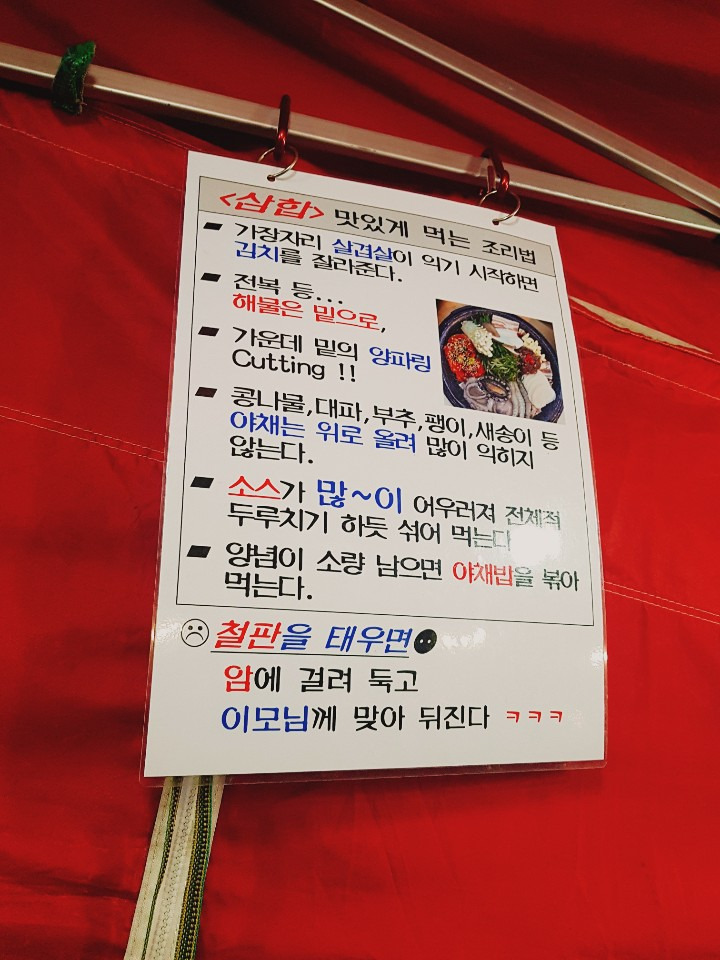 <삼합> 맛있게 먹는 조리법
가장자리 살겹살이 익기 시작하면
김치를 잘라준다.
전복 등...
해물은 밑으로,
가운데 밑의 양파링
Cutting !!
콩나물,대파,부추,팽이,새송이 등
야채는 위로 올려 많이 익히지
않는다.
소스가 많~이 어우러져 전체적
두루치기 하듯 섞어 먹는다
양념이 소량 남으면 야채밥을 볶아
먹는다.
철판을 태우면
암에 걸려 둑고
이모님께 맞아 뒤진다 ㅋㅋㅋ